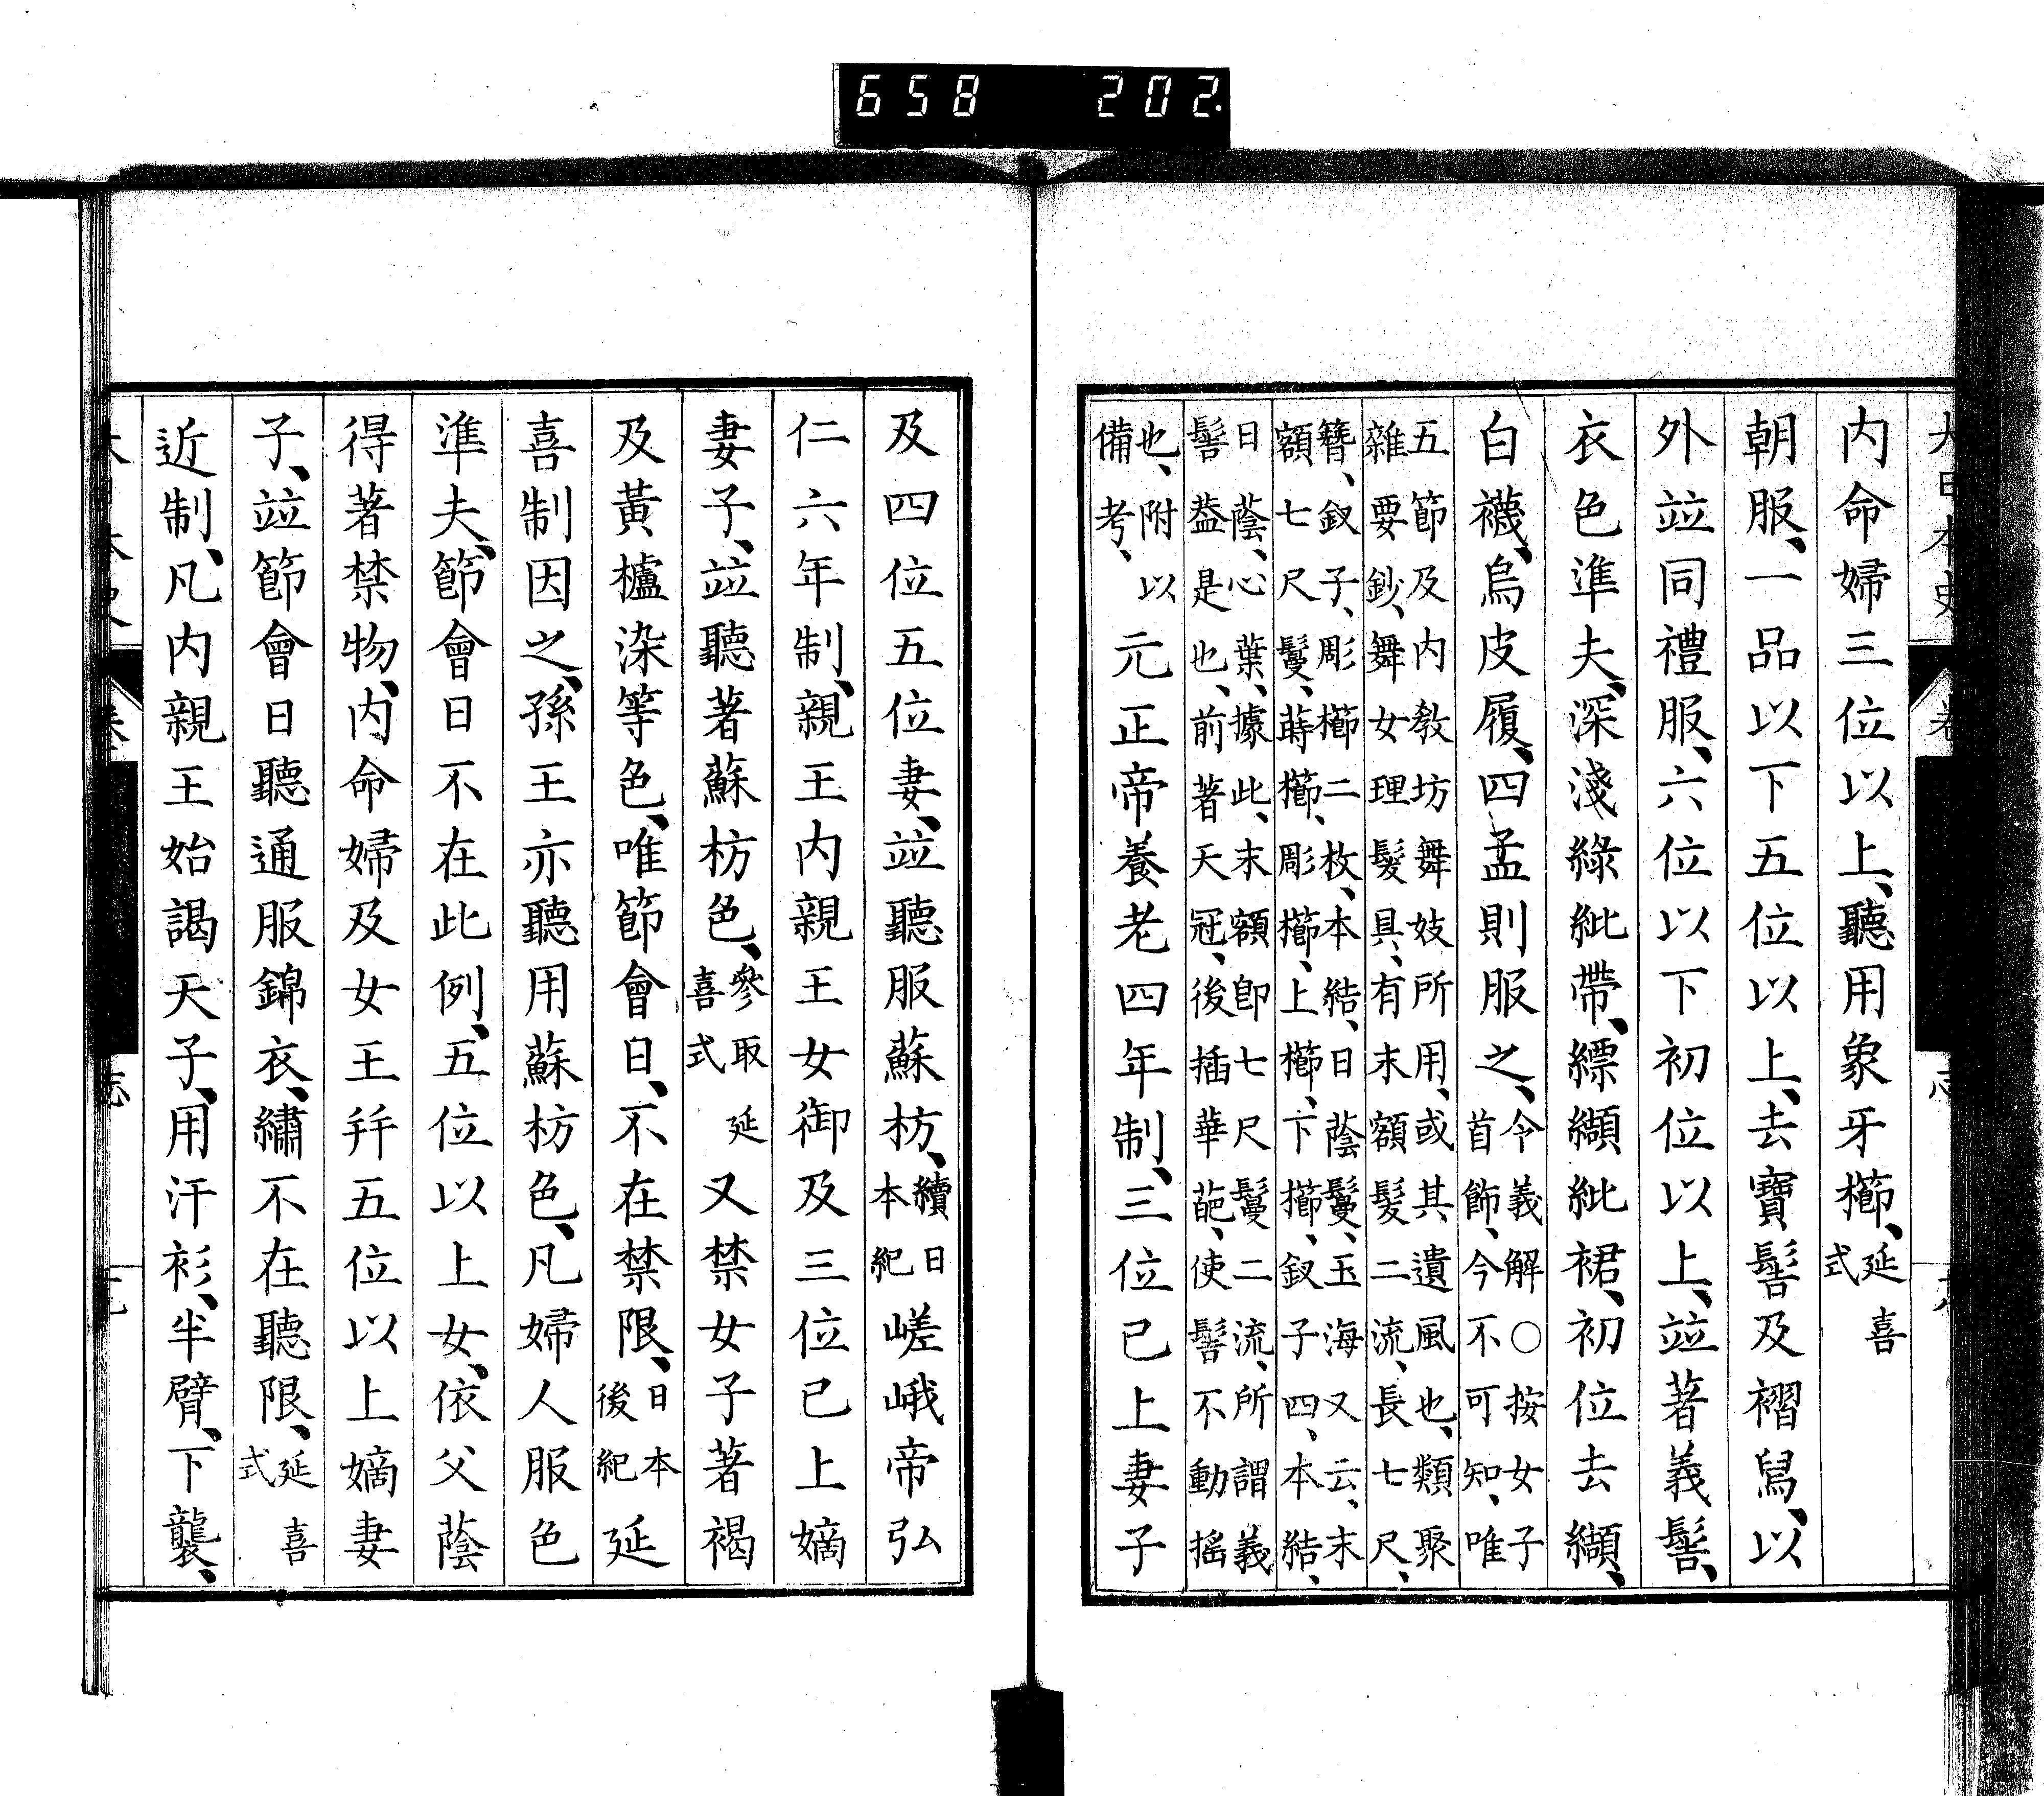 大日本史
内命婦三位以上、聽用象牙櫛、延喜式
朝服、一品以下五位以上、去寶髻及褶舄、以
外竝同禮服、六位以下初位以上、竝著義髻、
衣色準夫、深淺綠紕帶、縹纈紕裙、初位去纈、
白襪、烏皮履、四孟則服之、令義解○按女子首飾、今不可知、唯
五節及内敎坊舞妓所用、或其遺風也、類聚
雜要鈔、舞女理髮具、有末額髮二流、長七尺、
簪、釵子、彫櫛二枚、本結、日蔭鬘、玉海又云、末
額七尺鬘、蒔櫛、彫櫛、上櫛、下櫛、釵子四、本結、
日蔭、心葉、據此、末額卽七尺鬘二流、所謂義
髻葢是也、前著天冠、後插華葩、使髻不動搖
也、附以備考、元正帝養老四年制、三位已上妻子
及四位五位妻、竝聽服蘇枋、續日本紀嵯峨帝弘
仁六年制、親王内親王女御及三位已上嫡
妻子、竝聽著蘇枋色、參取延喜式又禁女子著褐
及黃櫨染等色、唯節會日、不在禁限、日本後紀延
喜制因之、孫王亦聽用蘇枋色、凡婦人服色
準夫、節會日不在此例、五位以上女、依父蔭
得著禁物、内命婦及女王幷五位以上嫡妻
子、竝節會日聽通服錦衣、繡不在聽限、延喜式
近制、凡内親王始謁天子、用汗衫、半臂、下襲、